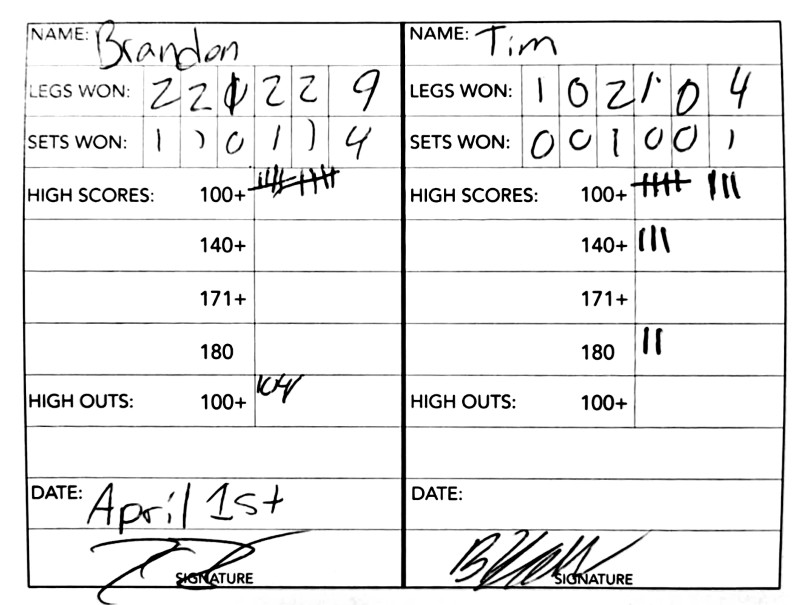 NAME: Brandon
LEGS WON: 2 2 1 2 2 9
SETS WON: 1 1 0 1 1 4
HIGH SCORES: 100+
140+
171+
180
HIGH OUTS: 100+ 104
DATE: April 1st
SIGNATURE
NAME: Tim
LEGS WON: 1 0 2 1 0 4
SETS WON: 0 0 1 0 0 1
HIGH SCORES: 100+ |||| |||
140+ |||
171+
180 ||
HIGH OUTS: 100+
DATE:
SIGNATURE